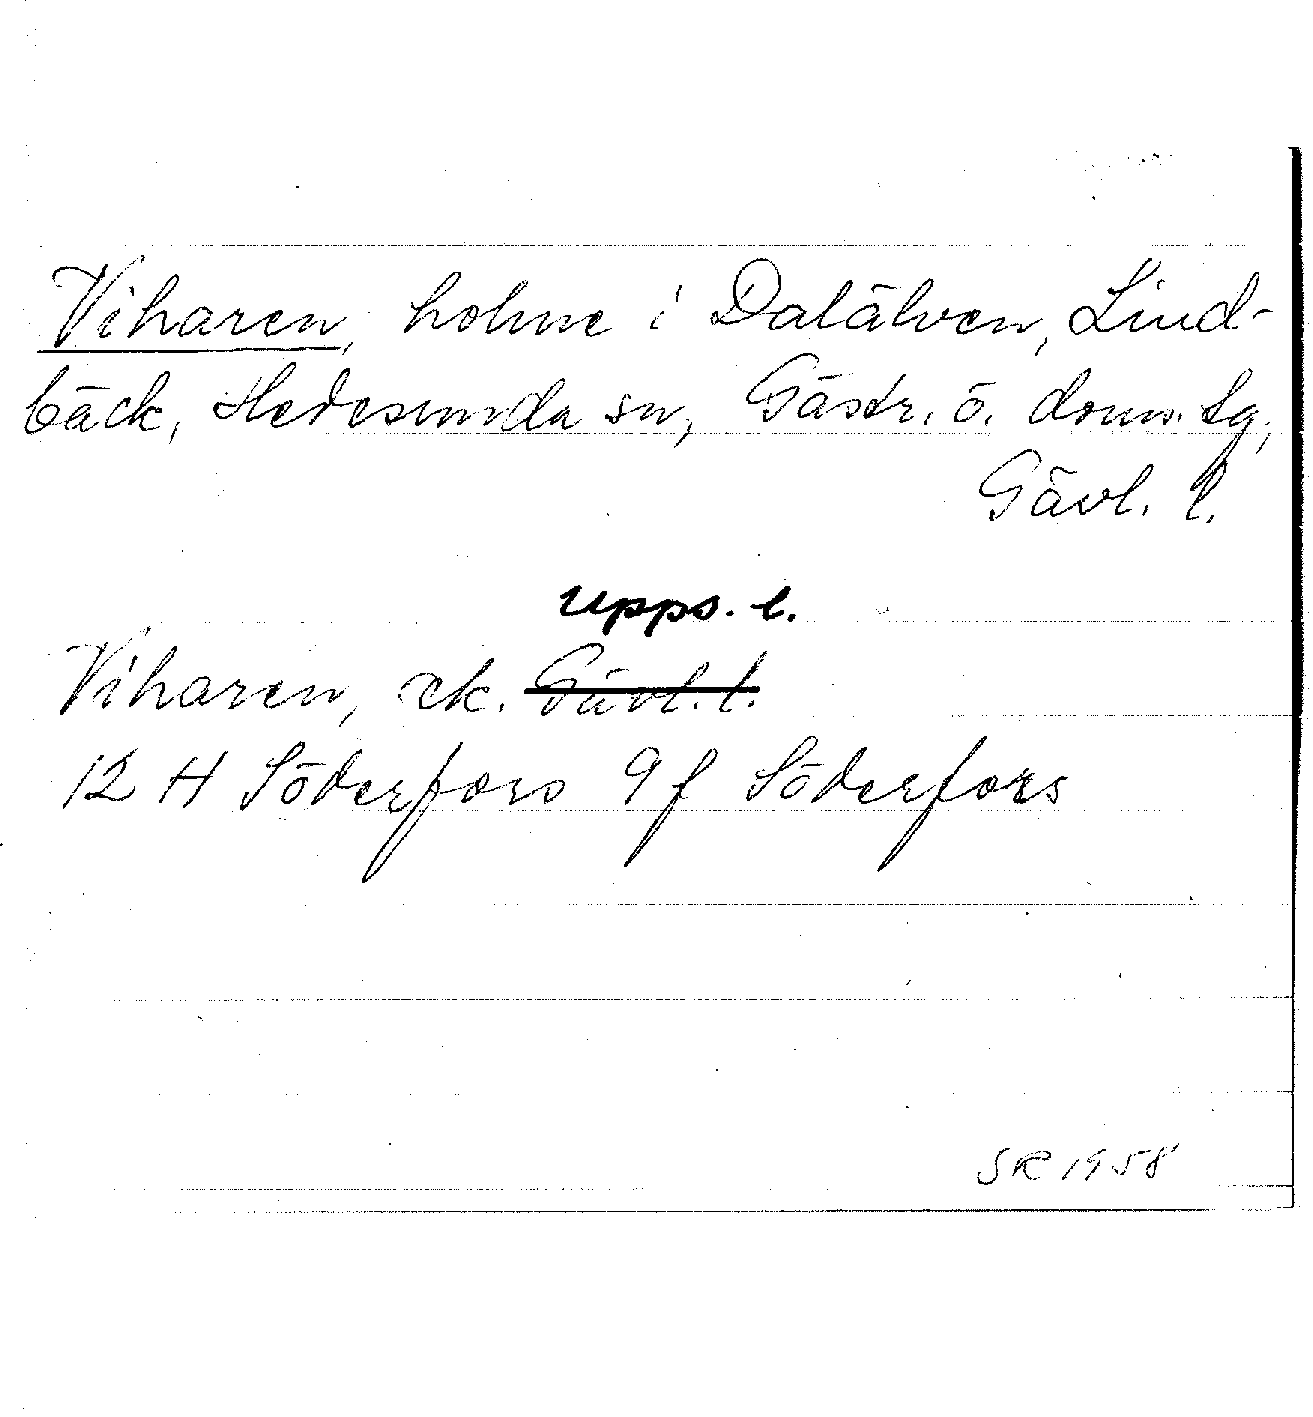 Viharen, holme i Dalälven, Lind-
bäck, Hedesunda sn, Gästr. ö. doms. tg,
Gävl. l.
Upps. l.
Viharen, ek. Gävl. l.
12 H Söderfors 9 f Söderfors
SR 1958